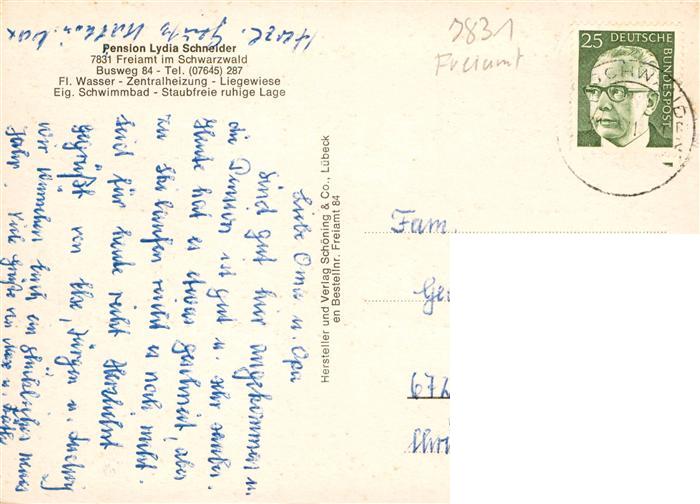 Herzl. Grüße
Pension Lydia Schneider
7831 Freiamt im Schwarzwald
Busweg 84 - Tel. (07645) 287
Fl. Wasser - Zentralheizung - Liegewiese
Eig. Schwimmbad - Staubfreie ruhige Lage
7831
Freiamt
25 DEUTSCHE BUNDESPOST
Liebe Oma u. Opa
sind gut hier angekommen, u.
die Pension ist gut u. sehr sauber.
Heute hat es etwas geschneit, aber
zu Ski laufen reicht es noch nicht.
Seid für heute recht herzlichst
gegrüßt von Ilse, Jürgen u. Ludwig
Wir wünschen Euch ein glückliches neues
Jahr. Viele Grüße von
Hersteller und Verlag Schöning & Co., Lübeck
en Bestellnr. Freiamt 84
Fam.
672